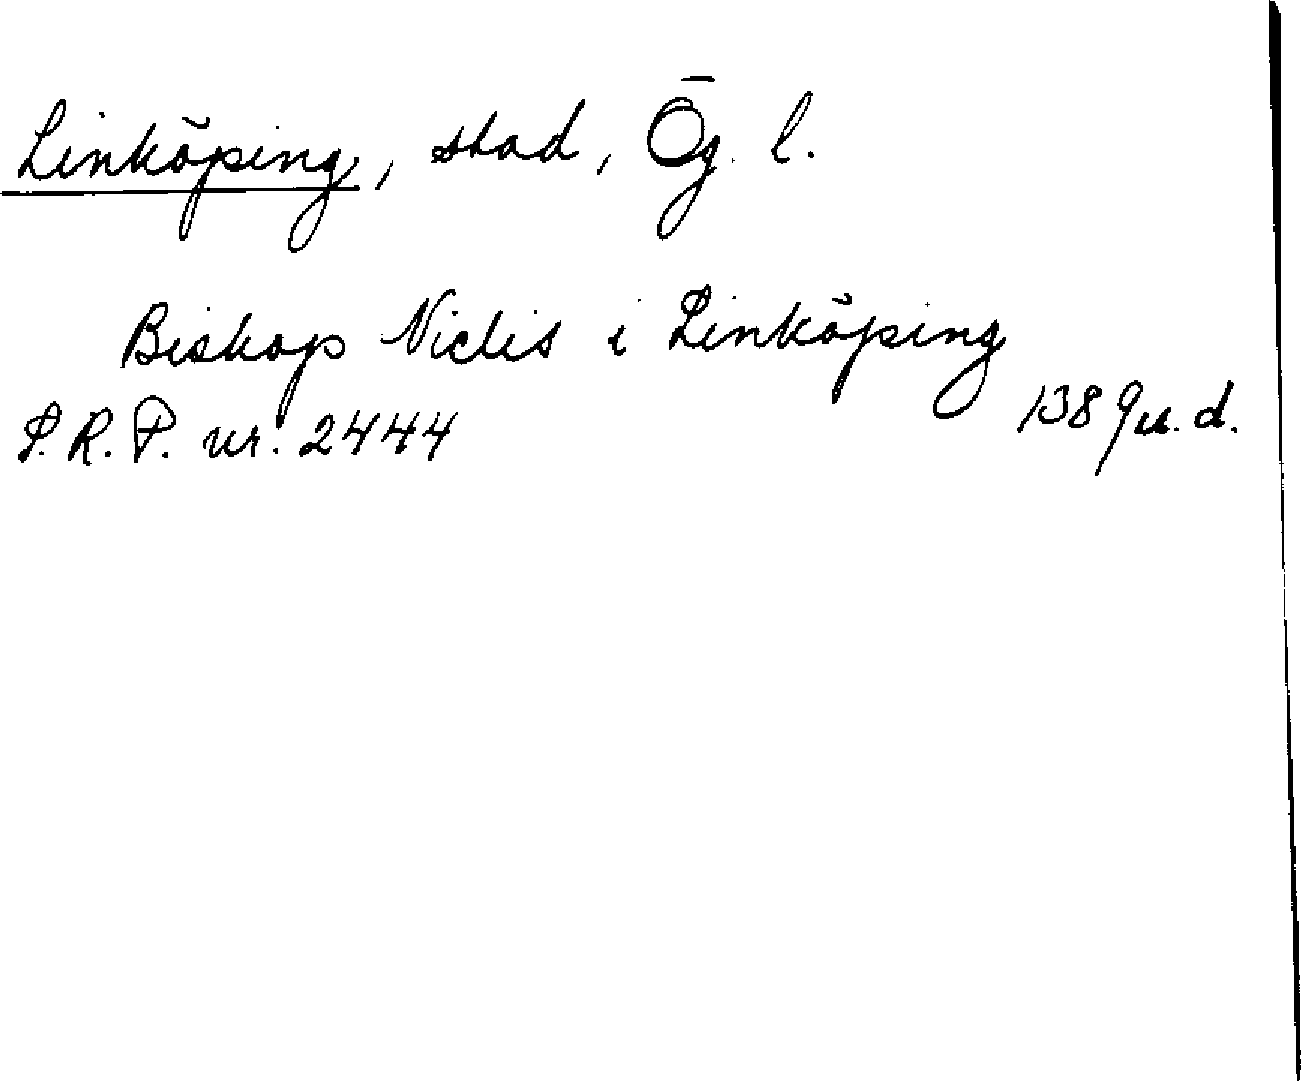 Linköping, stad, Ög. l.
Biskop Niclis i Linköping
1389 u. d.
S. R. P. nr. 2444